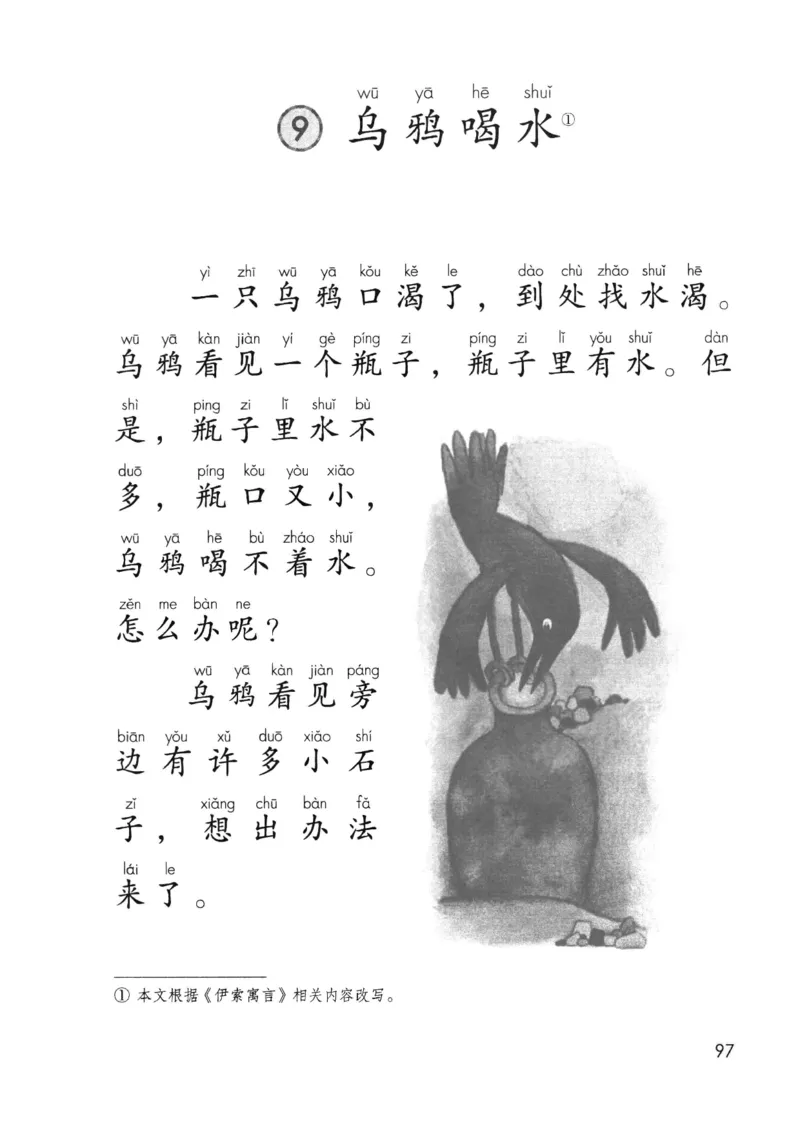 wū yā hē shuǐ
9 乌鸦喝水①
yì zhī wū yā kǒu kě le dào chù zhǎo shuǐ hē
一只乌鸦口渴了，到处找水渴。
wū yā kàn jiàn yí gè píng zi píng zi lǐ yǒu shuǐ dàn
乌鸦看见一个瓶子，瓶子里有水。但
shì píng zi lǐ shuǐ bù
是，瓶子里水不
duō píng kǒu yòu xiǎo
多，瓶口又小，
wū yā hē bù zháo shuǐ
乌鸦喝不着水。
zěn me bàn ne
怎么办呢？
wū yā kàn jiàn páng
乌鸦看见旁
biān yǒu xǔ duō xiǎo shí
边有许多小石
zǐ xiǎng chū bàn fǎ
子，想出办法
lái le
来了。
① 本文根据《伊索寓言》相关内容改写。
97